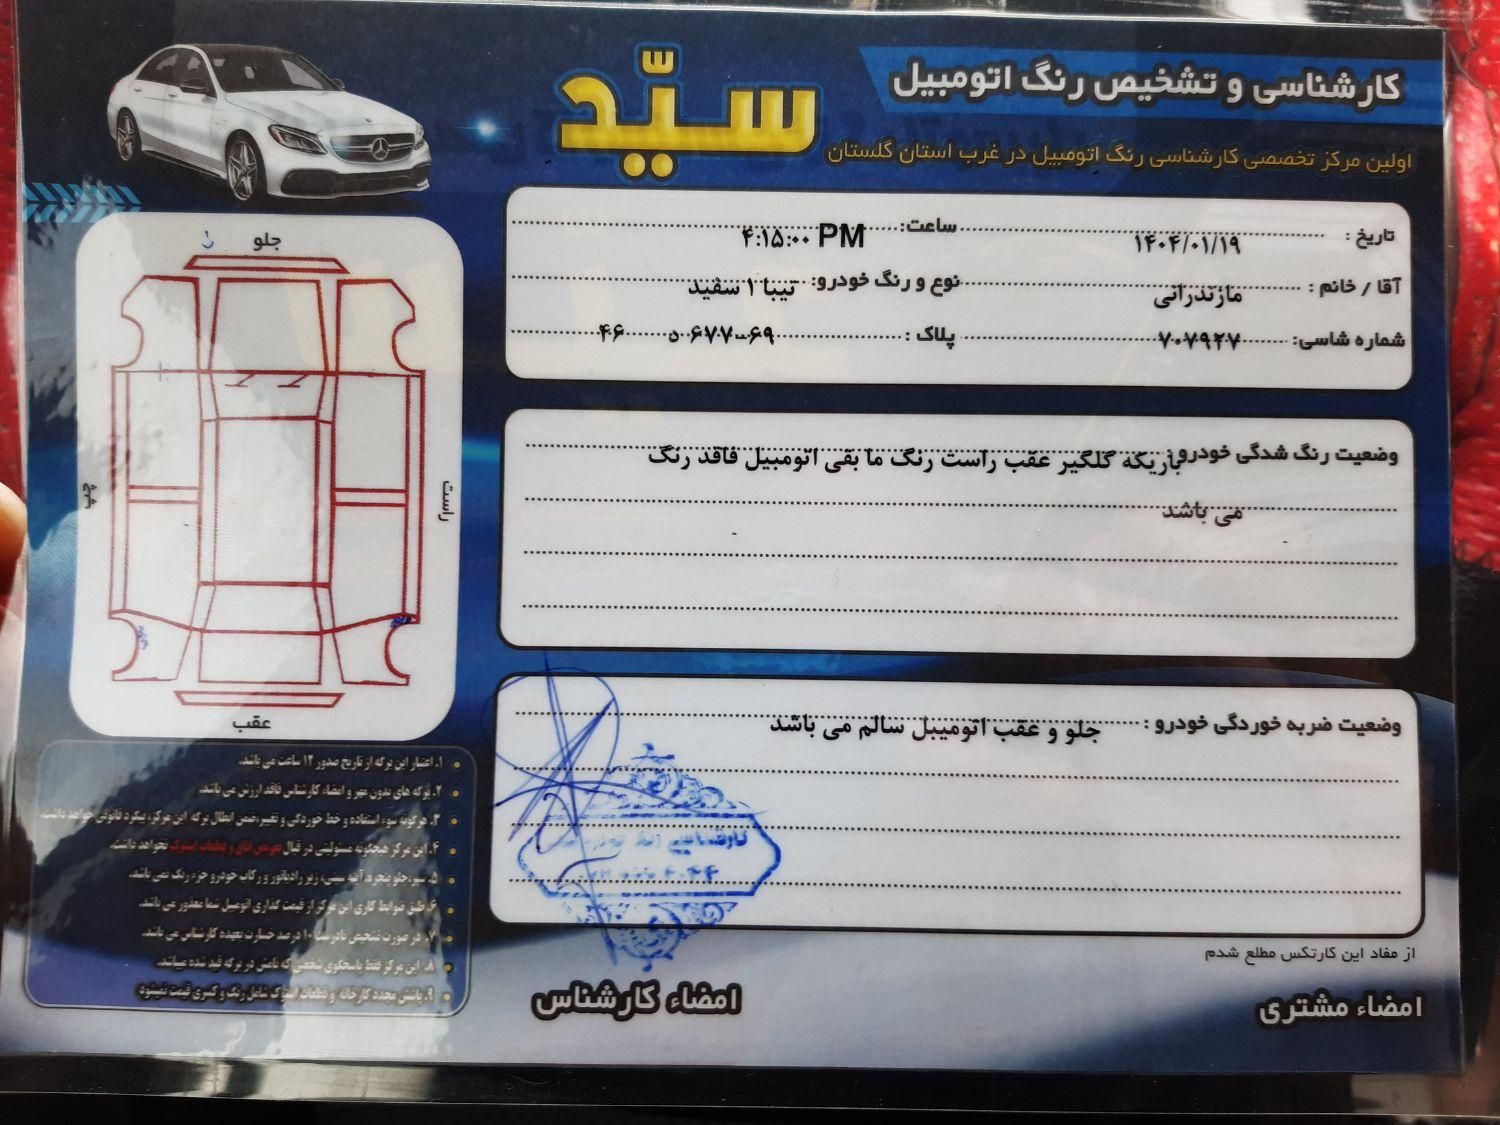 کارشناسی و تشخیص رنگ اتومبیل
سیّد
اولین مرکز تخصصی کارشناسی رنگ اتومبیل در غرب استان گلستان
تاریخ : ۱۴۰۴/۰۱/۱۹ ساعت: ۴:۱۵:۰۰ PM
آقا / خانم : مازندرانی نوع و رنگ خودرو: تیبا ۱ سفید
شماره شاسی: ۷۰۷۹۲۷ پلاک : ۶۹-۶۷۷ د ۴۶
وضعیت رنگ شدگی خودرو : باریکه گلگیر عقب راست رنگ ما بقی اتومبیل فاقد رنگ
می باشد
وضعیت ضربه خوردگی خودرو : جلو و عقب اتومبیل سالم می باشد
کارشناسی رنگ
از مفاد این کارتکس مطلع شدم
امضاء مشتری
امضاء کارشناس
جلو
راست
چپ
عقب
۱. اعتبار این برگه از تاریخ صدور ۱۲ ساعت می باشد.
۲. برگه های بدون مهر و امضاء کارشناس فاقد ارزش می باشد.
۳. هرگونه سوء استفاده و خط خوردگی و تغییر، ضمن ابطال برگه این مرکز، پیگرد قانونی خواهد داشت.
۴. این مرکز هیچگونه مسئولیتی در قبال تعویض اتاق و قطعات استوک نخواهد داشت.
۵. سپر، جلو پنجره، آینه، سینی، زیر رادیاتور و رکاب خودرو جزء رنگ نمی باشد.
۶. طبق ضوابط کاری این مرکز از قیمت گذاری اتومبیل شما معذور می باشد.
۷. در صورت تشخیص نادرست ۱۰ درصد خسارت بعهده کارشناس می باشد.
۸. این مرکز فقط پاسخگوی شخصی که نامش در برگه قید شده میباشد.
۹. پاشش مجدد کارخانه و قطعات استوک شامل رنگ و کسری قیمت نمیشود